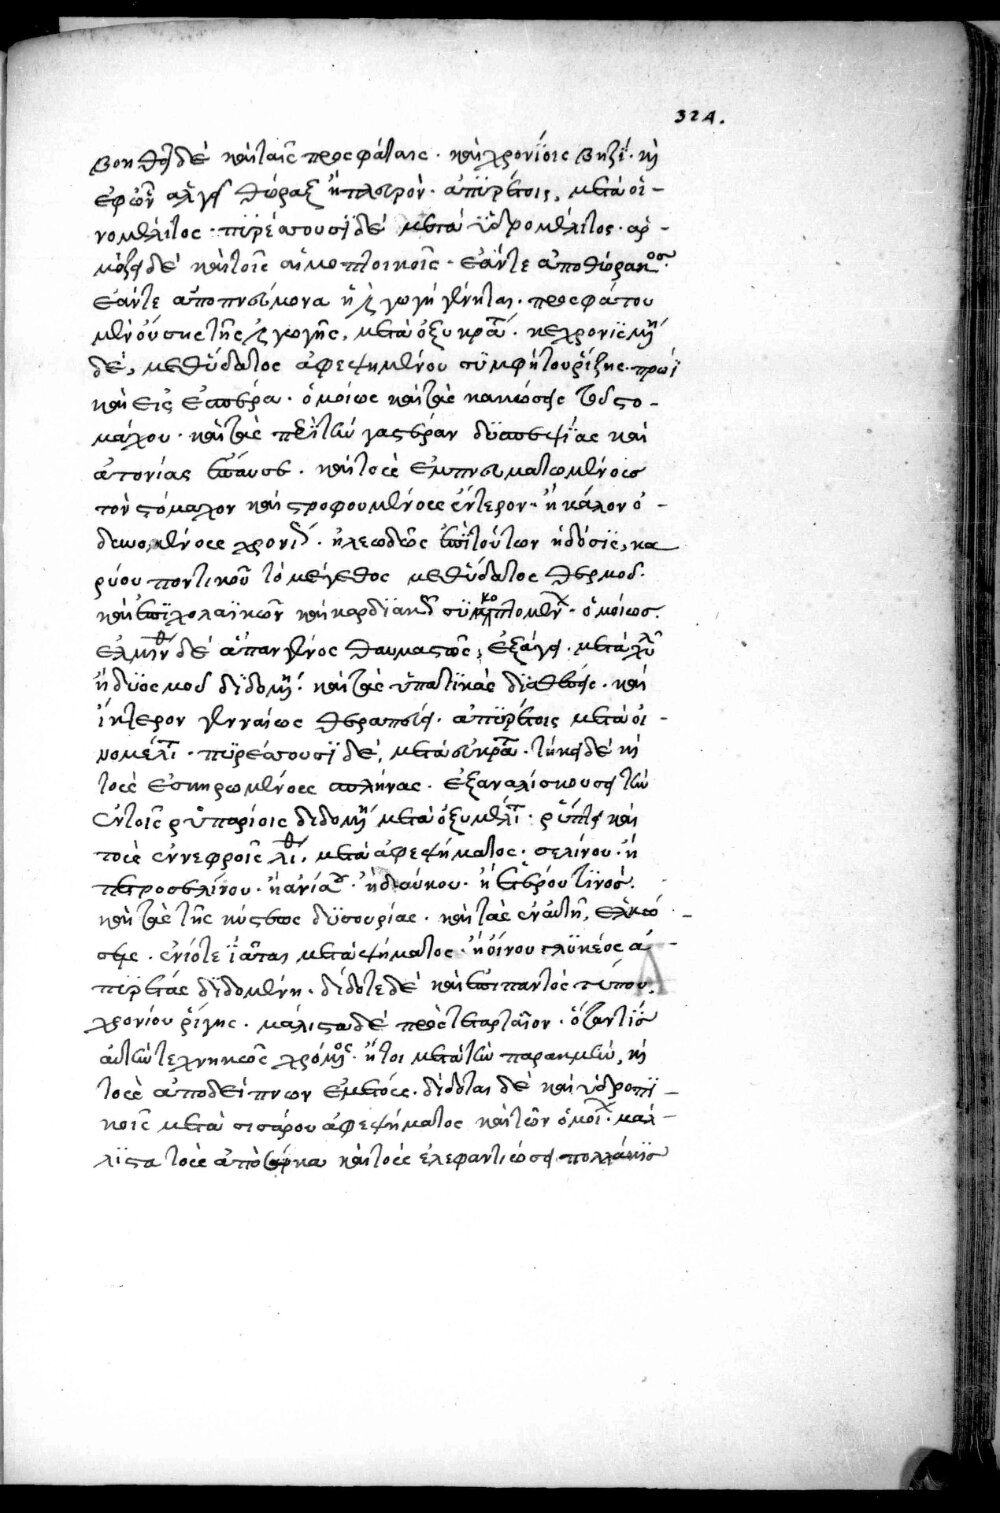 324.
βοηθεῖ δὲ καὶ ταῖς προσφάταις· καὶ χρονίοις βηξί· καὶ
ἐφῶν ἀλγεῖ θώραξ ἢ πλευρόν· ἀπυρέτοις, μετὰ οἰ-
νομέλιτος· πυρέσσουσι δὲ μετὰ ὑδρομέλιτος· ἁρ-
μόζει δὲ καὶ τοῖς αἱμοπτοικοῖς· ἐάντε ἀπὸ θώρακος
ἐάντε ἀπὸ πνεύμονα ἡ ἀγωγὴ γένηται· προσφάτου
μὲν οὔσης τῆς ἀγωγῆς, μετὰ ὀξυκράτ· κεχρονισμη
δὲ, μεθ' ὕδατος ἀφεψημένου συμφήτου ῥίζης· πρωῒ
καὶ εἰς ἑσπέρα· ὁμοίως καὶ τὰς κακώσεις τοῦ στο-
μάχου· καὶ τὰς περὶ τὴν γαστέραν δυσπεψίας καὶ
ἀτονίας παύσει· καὶ τοὺς ἐμπνευματωμένους
τὸν στόμαχον καὶ στροφουμένους ἔντερον· ἢ κάλον ὀ-
χρονι· ἡ δόσις, κα
ρύου ποντικοῦ τὸ μέγεθος μεθ' ὕδατος θερμοῦ·
καὶ ἐπὶ χολαϊκῶν καὶ καρδιακ συγκοπτομένων· ὁμοίως
ἕλμινθ δὲ ἅπαν γένος θαυμαστῶς, ἐξάγει· μετὰ χυλ
ἡδυόσμου διδομη· καὶ τὰς ὑπατικὰς διαθέσεις· καὶ
ἴκτερον γενναίως θεραπεύει· ἀπυρέτοις μετὰ οἰ-
νομέλιτ· πυρέσσουσι δὲ, μετὰ εὐκράτ· τήκει δὲ καὶ
τοὺς ἐσκιρωμένους σπλῆνας· ἐξαναλίσκουσα τὴν
ἐν τοῖς ὑπαρίοις διδομη μετὰ ὀξυμέλιτ· ῥύπτει καὶ
τοὺς ἐν νεφροῖς λίθ, μετὰ ἀφεψήματος· σελίνου· ἢ
πετροσελίνου· ἢ ἀνίσου· ἢ δαύκου· ἢ ἑτέρου τινός·
καὶ τὰς τῆς κύστεως δυσουρίας· καὶ τὰς ἐν αὐτῇ, ἑλκώ-
σεις· ἐνίοτε ἰᾶται μετὰ ἑψήματος· ἢ οἴνου γλυκέος ἀ-
πυρέτας διδομένη· δίδοτε δὲ καὶ ἐπὶ παντὸς τύπου·
χρονίου ῥίγης· μάλιστα δὲ πρὸς τεταρταῖον· ὁτ' ἄν τις
αὐτῶ τεχνηκῶς χρόμος· ἤτοι μετὰ τὴν παρακμὴν, καὶ
τοὺς ἀπὸ δείπνων ἐμέτους· δίδοται δὲ καὶ ὑδροπι-
κοῖς μετὰ σισάρου ἀφεψήματος καὶ τῶν ὁμοί· μάλ-
λιστα τοὺς ἀπὸ σάρκα καὶ τοὺς ἐλεφαντιώσει πολλάκις